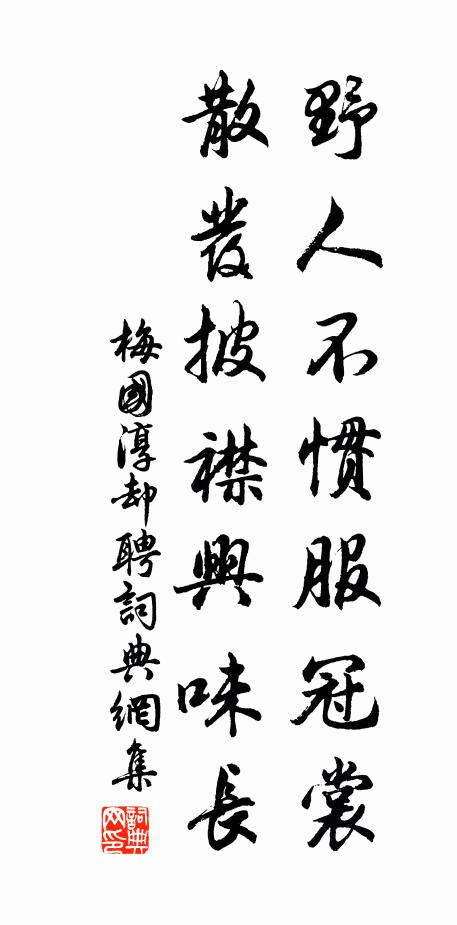 野人不慣服冠裳
散發披襟興味長
梅國淳却聘詞典網集
詞典網印